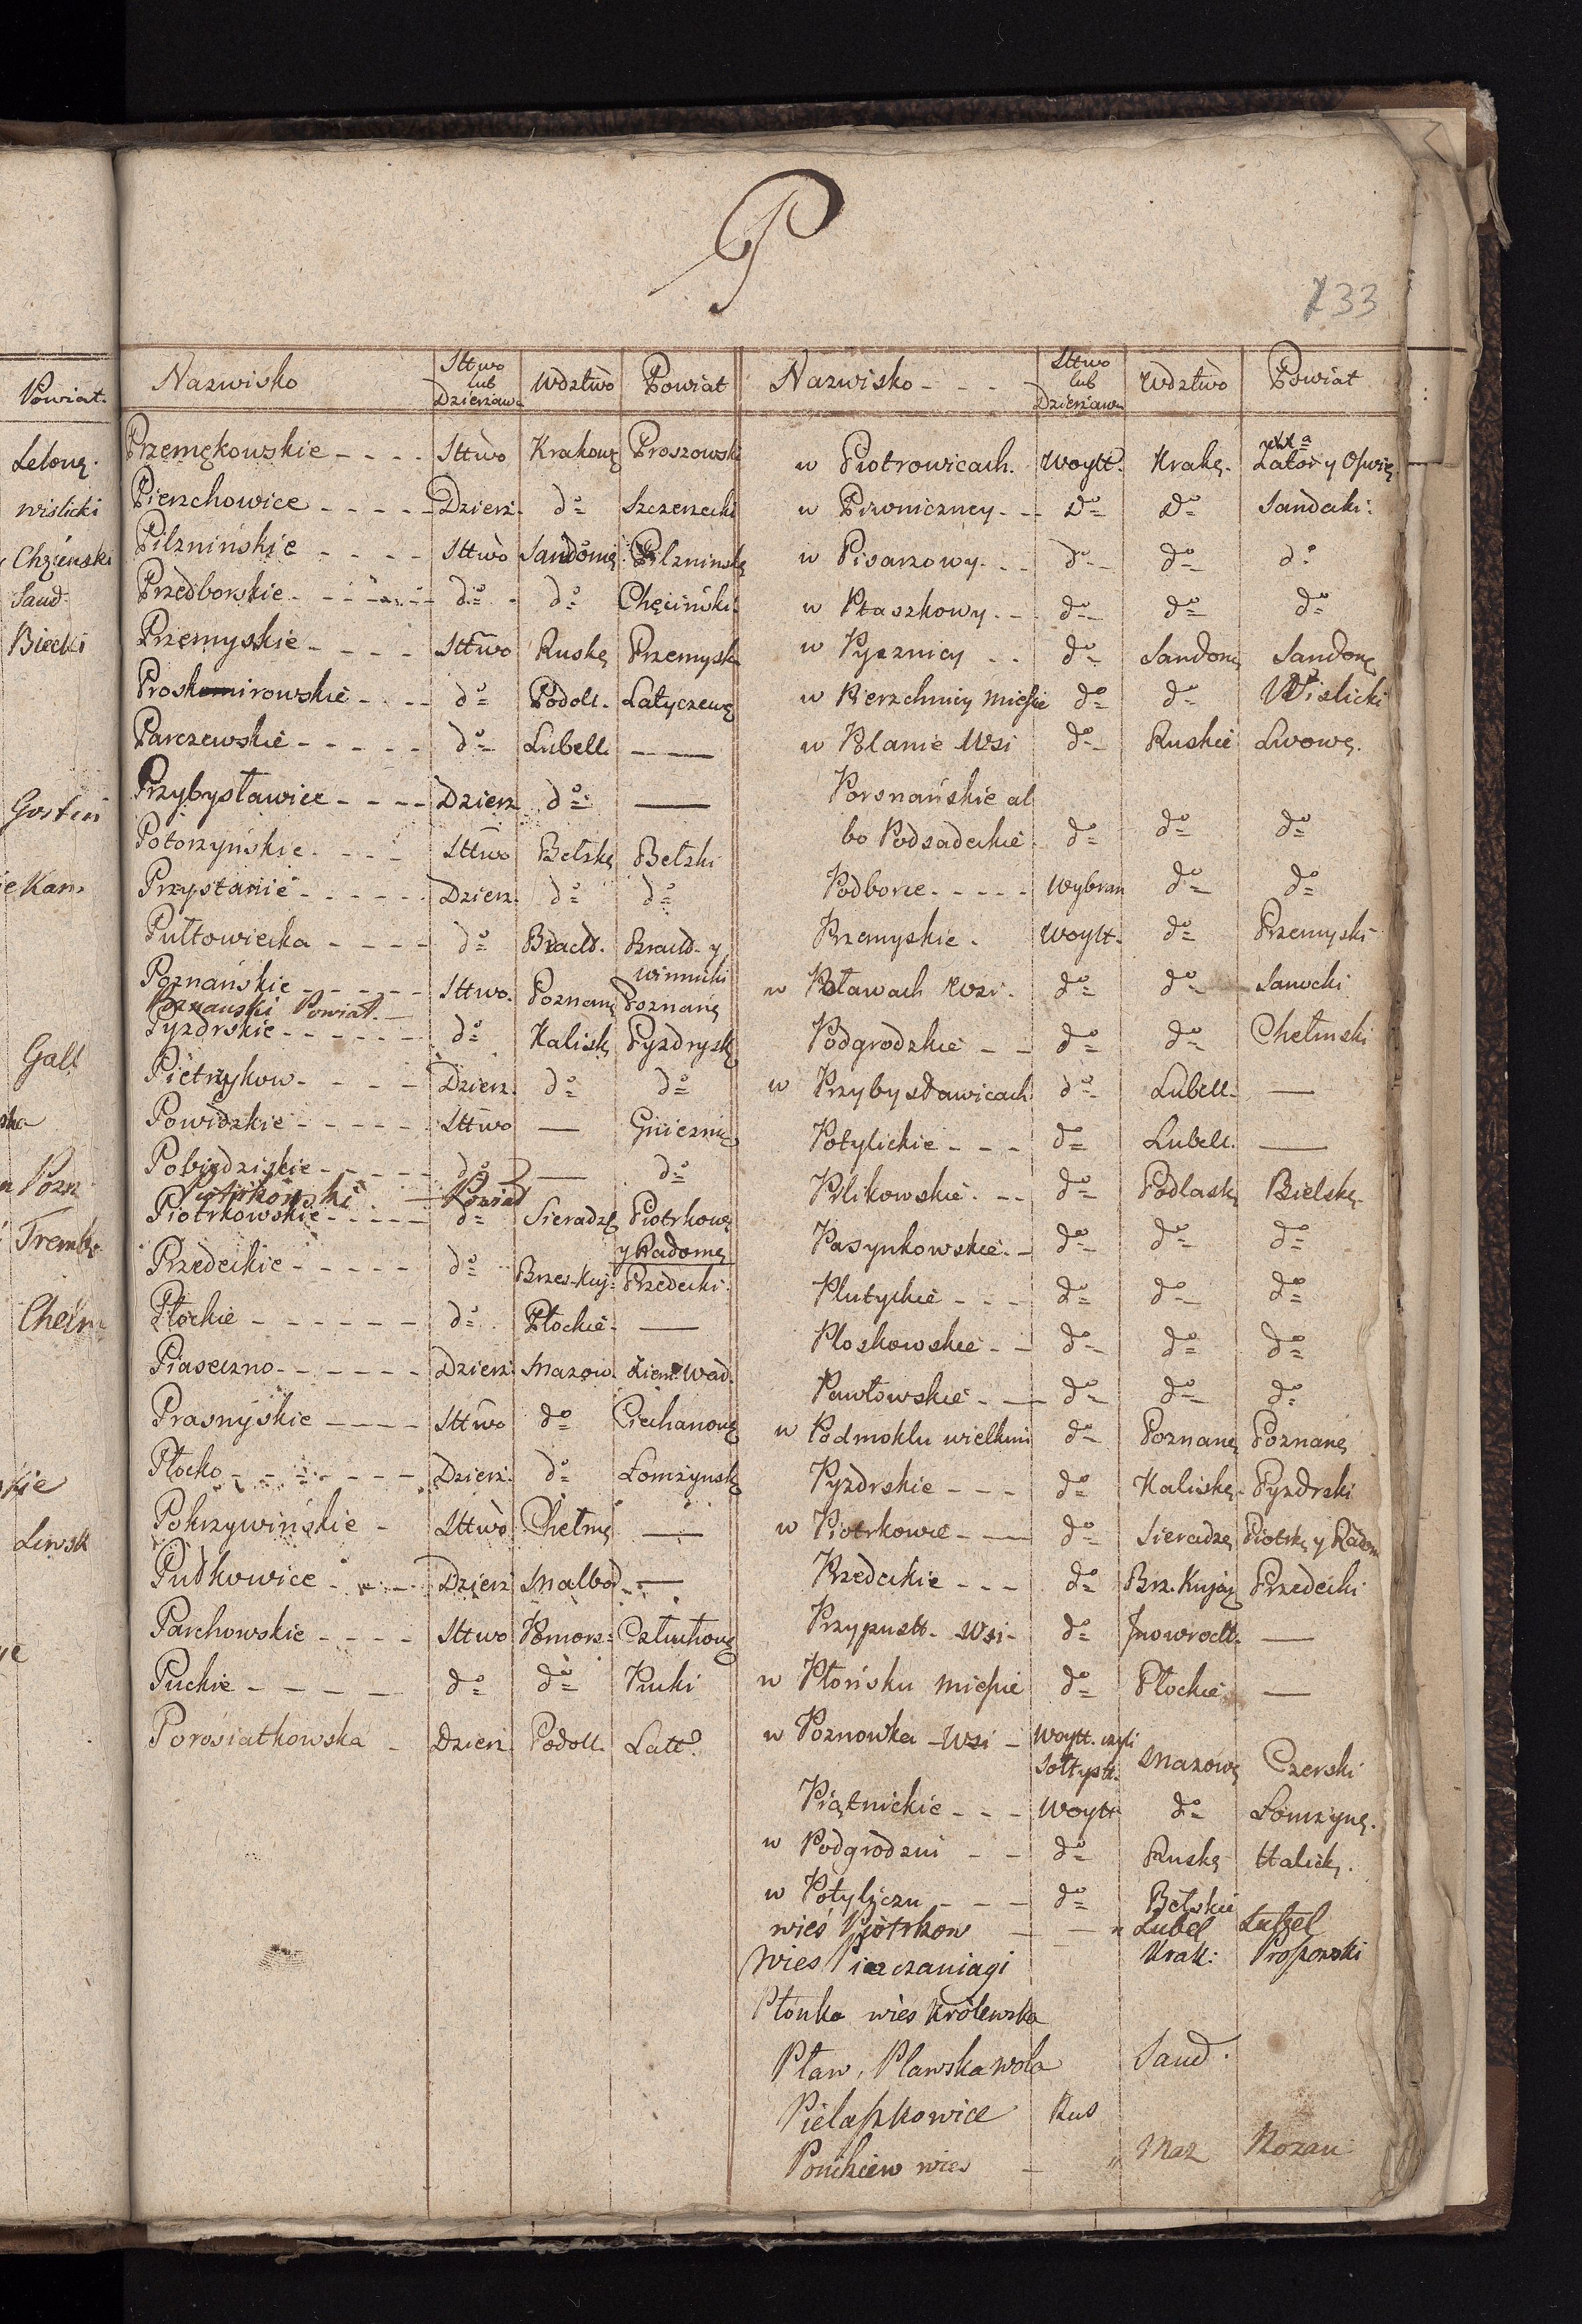 P
133
Powiat.
Lelow͠ę.
wislicki
Chęcinski
Sand.
Biecki
Gostin
Kan.
Gall
Pozn
Trembo
Chełm
Liwsk
Nazwisko | Sttwo lub Dzierżawa | Wdztwo | Powiat
Przemękowskie - - - - | Sttwo | Krakowę | Proszowsk
Pierzchowice - - - - - | Dzierż. | do | Szczerzecki
Pilznińskie - - - - | Sttwo | Sandomię | Pilzninskę
Przedborskie - - - - | do | do | Chęciński
Przemyskie - - - - | Sttwo | Ruskę | Przemysk
Proskomirowskie - - - | do | Podoll. | Latyczewę
Parczewskie - - - - - | do | Lubell. | —
Przybysławice - - - - | Dzierż | do | —
Potorzyńskie - - - - | Sttwo | Bełskę | Bełzki
Przystanie - - - - - | Dzierż. | do | do
Pułtowiecka - - - - | do | Bracld. | Bracld. y winnicki
Poznańskie - - - - - | Sttwo. | Poznanę | Poznanę
Poznanski Powiat. —
Pyzdrskie - - - - - - | do | Kalisk | Pyzdryskę
Pietrzykow - - - - | Dzierż. | do | do
Powidzkie - - - - - | Sttwo | — | Gnieznię
Pobiedziskie - - - - - | do | — | do
Piotrkowski — Powiat
Piotrkowskie - - - - - | do | Sieradzę | Piotrkowę y Radomę
Przedeckie - - - - - | do | Brzes-Kuj: | Przedecki
Płockie - - - - - - | do | Płockie - | —
Piaseczno - - - - - - | Dzierż. | Mazow. | Ziem. Ward.
Prasnyskie - - - - | Sttwo | do | Ciechanowę
Płocko - - - - - - | Dzierż. | do | Łomżynskę
Pokrzywińskie - | Sttwo | Chełmę | —
Pudkowice - - - | Dzierż | Malbod. | —
Parchowskie - - - - | Sttwo | Pomorz= | Człuchowę
Puckie - - - - - | do | do | Pucki
Porosiatkowska - | Dzierż. | Podoll. | Latt.
Nazwisko - - - | Sttwo lub Dzierżawa | Wdztwo | Powiat
w Piotrowicach. | Woytt. | Krakę. | Zator y Oświę
w Piwniczney - - | do | do | Sandecki.
w Pisarzowy - - | do | do | do
w Ptaszkowy - - | do | do | do
w Pysznicy - - | do | Sandomę | Sandomę
w Pierzchnicy Mieście | do | do | Wislicki
w Planie Wsi | do | Ruskie | Lwowę.
Porsnańskie al
bo Podsadeckie | do | do | do
Podborce - - - - - | Wybran | do | do
Przemyskie. | Woytt. | do | Przemyski
w Pławach Wsi. | do | do | Sanocki
Podgrodzkie - - | do | do | Chełmski
w Przybysławicach | do | Lubell. | —
Potylickie - - - | do | Lubell. | —
Pilikowskie - - | do | Podlaskę | Bielskę
Pasynkowskie - | do | do | do
Plutyckie - - - | do | do | do
Ploskowskie - - | do | do | do
Pawłowskie - — | do | do | do
w Podmoklu wielkim | do | Poznanę | Poznanę
Pyzdrskie - - - | do | Kaliskę | Pyzdrski
w Piotrkowie - — | do | Sieradzę | Piotrkę y Radom
Przedeckie - - - | do | Brz. Kujaę | Przedecki
Przypustt. Wsi - | do | Jnowroctt. | —
w Płońsku Mieście | do | Płockie | —
w Poznowka - Wsi - | Woytt. czyli Sołtystt. | Mazowę | Czerski
Piątnickie - - - | Woytt | do | Łomżynę.
w Podgrodziu - - | do | Ruskę | Halickę.
w Potyliczu - - - | do | Bełskie
wieś Piotrkow — — " | Lubel | Lubel
Wies Pieczaniagi | Krak: | Proszowski
Płonka wies Królewska
Pław, Plawska wola | Sand.
Pielaszkowice | Rus
Ponikiew wies — " | Maz | Rozan